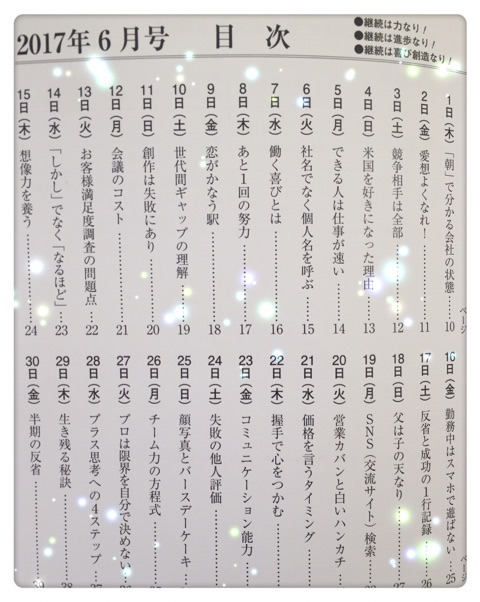 2017年6月号 目次
●継続は力なり!
●継続は進歩なり!
●継続は喜び創造なり!
ページ
1日(木)「朝」で分かる会社の状態……10
2日(金)愛想よくなれ!……11
3日(土)競争相手は全部……12
4日(日)米国を好きになった理由……13
5日(月)できる人は仕事が速い……14
6日(火)社名でなく個人名を呼ぶ……15
7日(水)働く喜びとは……16
8日(木)あと1回の努力……17
9日(金)恋がかなう駅……18
10日(土)世代間ギャップの理解……19
11日(日)創作は失敗にあり……20
12日(月)会議のコスト……21
13日(火)お客様満足度調査の問題点……22
14日(水)「しかし」でなく「なるほど」……23
15日(木)想像力を養う……24
ページ
16日(金)勤務中はスマホで遊ばない……25
17日(土)反省と成功の1行記録……26
18日(日)父は子の天なり……27
19日(月)SNS(交流サイト)検索……
20日(火)営業カバンと白いハンカチ……
21日(水)価格を言うタイミング……
22日(木)握手で心をつかむ……
23日(金)コミュニケーション能力……
24日(土)失敗の他人評価……
25日(日)顔写真とバースデーケーキ……
26日(月)チーム力の方程式……
27日(火)プロは限界を自分で決めない……
28日(水)プラス思考への4ステップ……
29日(木)生き残る秘訣……
30日(金)半期の反省……